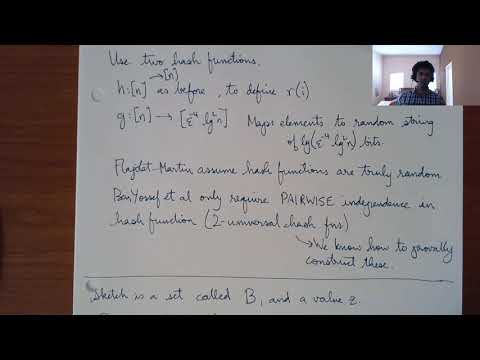 Use two hash functions.
h:[n] →[n] as before, to define r(i)
g:[n] → [ε⁻⁴ lg²n] Maps elements to random string
of lg(ε⁻⁴ lg²n) bits.
Flajolet-Martin assume hash functions are truly random
BarYossef et al only require PAIRWISE independence in
hash function (2-universal hash fns)
↳ We know how to provably
construct these.
Sketch is a set called B, and a value z.